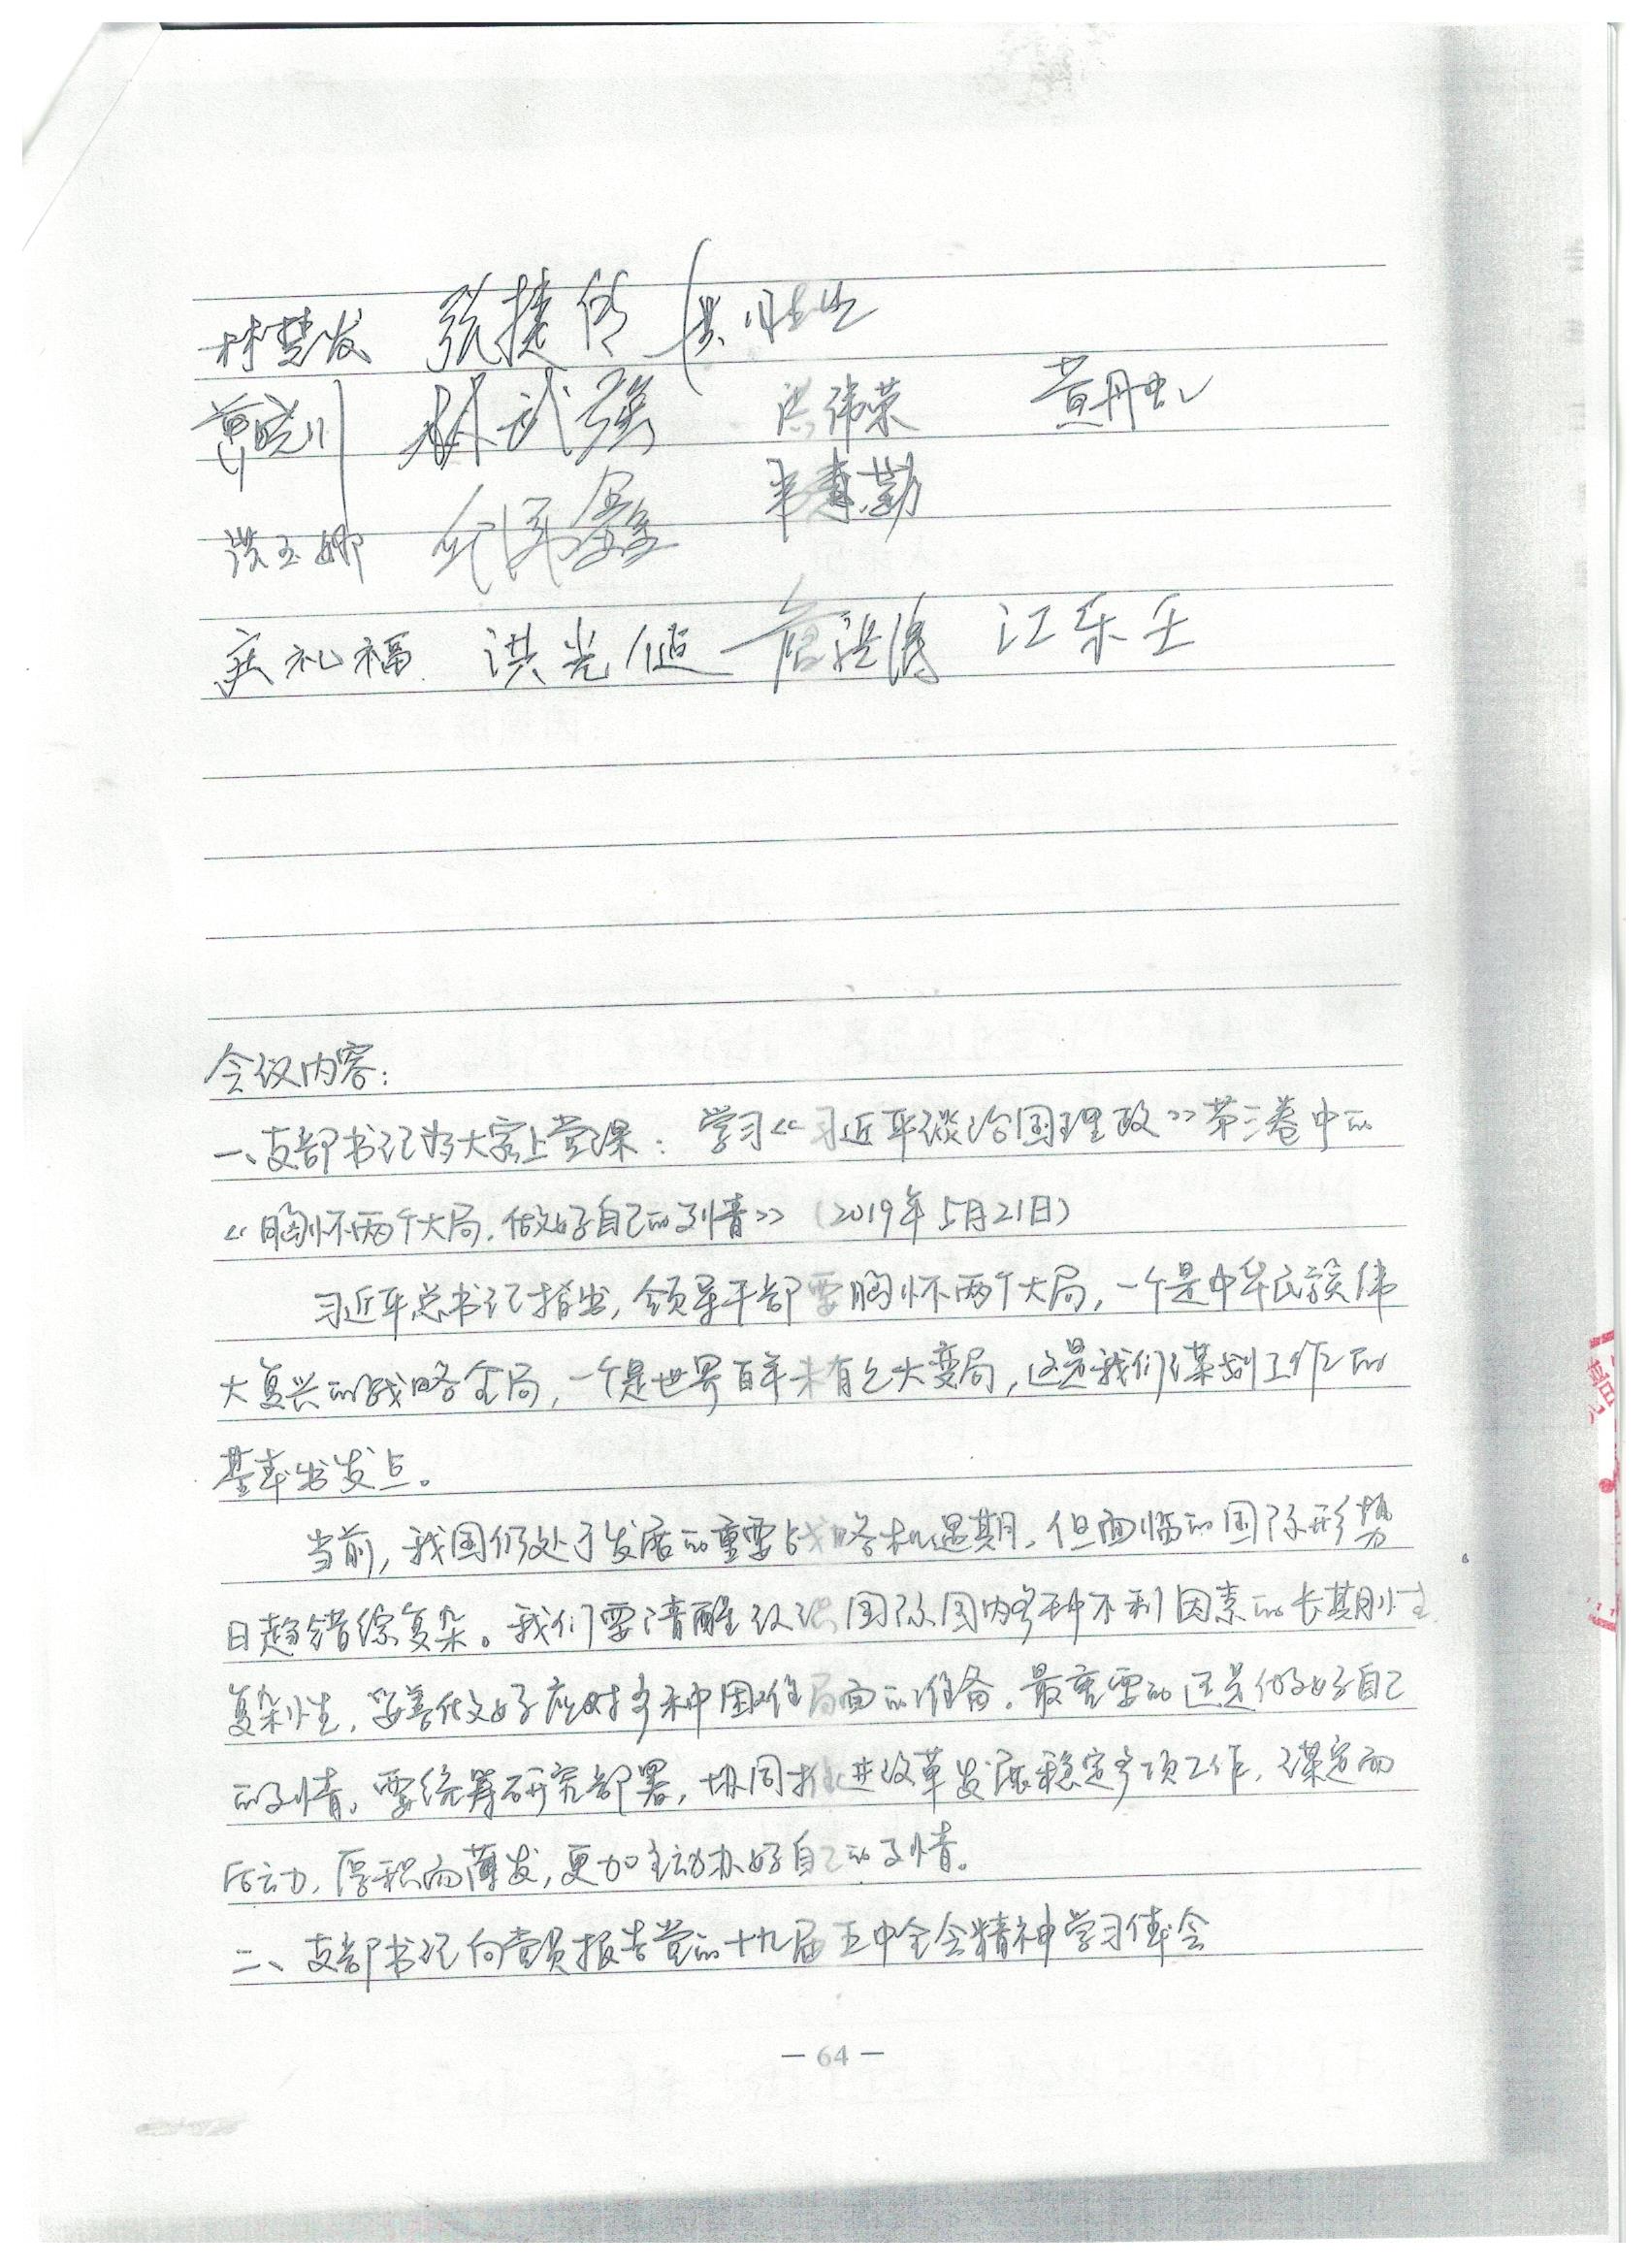 林楚发 张捷
黄晓川 林武强 洪伟荣 黄丹虹
洪玉娜 鑫 勤
庄礼福 洪光 江乐壬
会议内容：
一、支部书记为大家上党课：学习《习近平谈治国理政》第三卷中的
《胸怀两个大局，做好自己的事情》（2019年5月21日）
习近平总书记指出，领导干部要胸怀两个大局，一个是中华民族伟
大复兴的战略全局，一个是世界百年未有之大变局，这是我们谋划工作的
基本出发点。
当前，我国仍处于发展的重要战略机遇期，但面临的国际形势
日趋错综复杂。我们要清醒认识国际国内各种不利因素的长期性
复杂性，妥善做好应对各种困难局面的准备。最重要的还是做好自己
的事情。要统筹研究部署，协同推进改革发展稳定各项工作，谋定而
后动，厚积而薄发，更加主动办好自己的事情。
二、支部书记向党员报告党的十九届五中全会精神学习体会
— 64 —